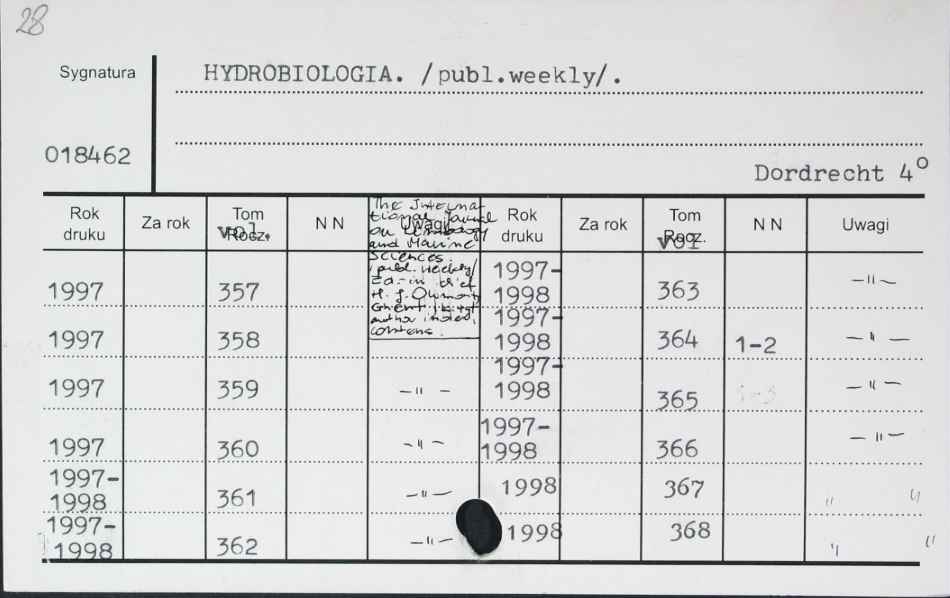 28
Sygnatura
HYDROBIOLOGIA. /publ.weekly/.
018462
Dordrecht 4°
Rok druku Za rok Tom Rocz. vol. N N Uwagi Rok druku Za rok Tom Rocz. vol N N Uwagi
The Interna-
tional Journal
on Limnology
and Marine
Sciences.
/publ. weekly/
Ed.-in chief
H. J.
Ghent
author index,
contens.
1997 357
1997 358
1997 359 —"—
1997 360 —"—
1997-1998 361 —"—
1997-1998 362 —"—
1997-1998 363 —"—
1997-1998 364 1-2 —"—
1997-1998 365 —"—
1997-1998 366 —"—
1998 367 " "
1998 368 " "